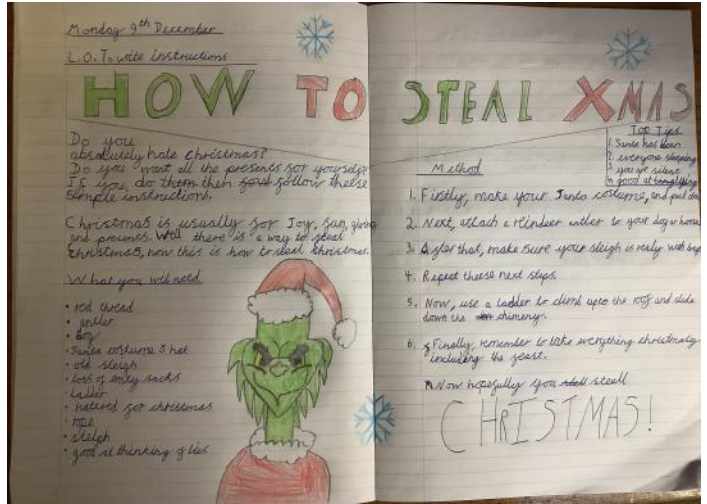 Monday 9th December
L.O. To write instructions
HOW TO STEAL XMAS
Do you
absolutely hate christmas?
Do you want all the presents for yourself?
If you do them then follow theese
simple instructions.
Christmas is usually for Joy, fun, giving
and presents. Well there is a way to steal
christmas, now this is how to steal christmas.
What you will need
• red thread
• antler
• dog
• Santa costume & hat
• old sleigh
• loss of emty sacks
• ladder
• hatered for christmas
• sleigh
• good at thinking of lies
Top Tips
1. Santa has been
2. everyone sleeping
3. you are silent
4. good at lying
Method
1. Firstly, make your Santa costume, and put
2. Next, attach a reindeer antler to your dog or horse
3. After that, make sure your sleigh is ready with
4. Repeat theese next steps.
5. Now, use a ladder to climb upto the roof and slide
down the chimeny.
6. Finally, remember to take everything christmasy
including the feast.
Now hopefully you steall
CHRISTMAS!